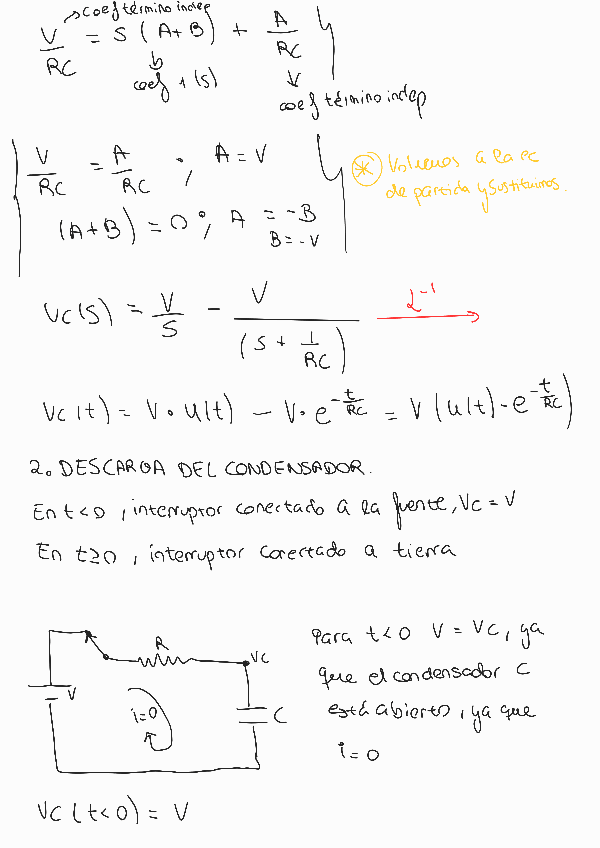 coef término indep
V/RC = S (A+B) + A/RC
coef + (s)
coef término indep
V/RC = A/RC ; A = V
(A+B) = 0 ; A = -B
B = -V
* Volvemos a la ec
de partida y sustituimos.
Vc(s) = V/S - V/(s + 1/RC) L⁻¹
Vc(t) = V · u(t) - V · e^(-t/RC) = V (u(t) - e^(-t/RC))
2. DESCARGA DEL CONDENSADOR.
En t<0, interruptor conectado a la fuente, Vc = V
En t≥0, interruptor conectado a tierra
Para t<0 V = Vc, ya
que el condensador C
está abierto, ya que
i = 0
R
Vc
V
i=0
C
Vc (t<0) = V